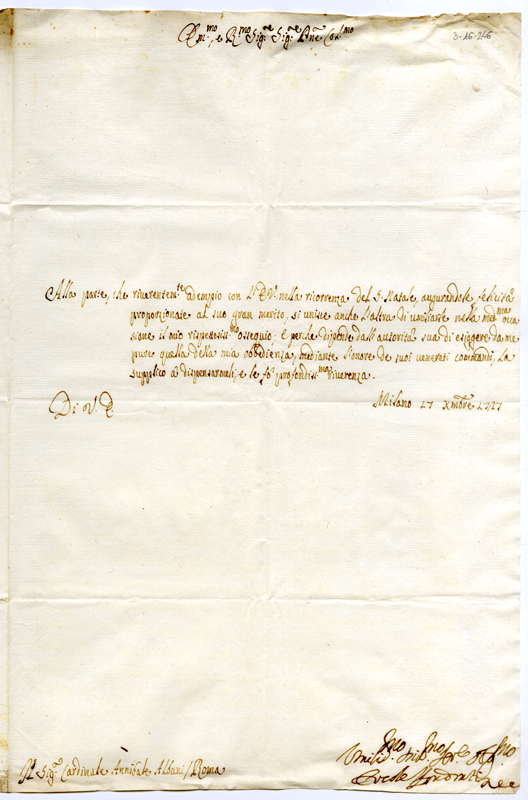 Em.mo e R.mo Sig.re Sig.re Pne Col.mo
3-16-246
Alla parte, che riverentem.te adempio con L'E.V. nella ricorrenza del S. Natale, augurandole felicità
proporzionate al suo gran merito, si unisce anche l'altra di umiliarle nella med.ma occa
sione il mio rispettosiss.mo ossequio; E perche dipende dall'autorità sua di esiggere da me
pure quella della mia obbedienza, mediante l'onore de suoi venerati commandi, La
supplico à dispensarmeli; e le fò profondiss.ma riverenza.
Di V.E.
Milano 17 Xmbre 1727
Umiliss.mo
S.r Cardinale Annibale Albani / Roma